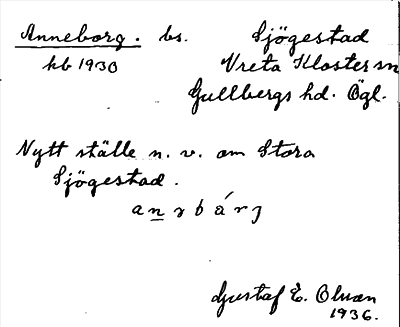 Anneborg. bs. Sjögestad
kb 1930 Vreta Kloster sn
Gullbergs hd. Ögl.
Nytt ställe n. v. om Stora
Sjögestad.
Gustaf E. Olsson
1936.